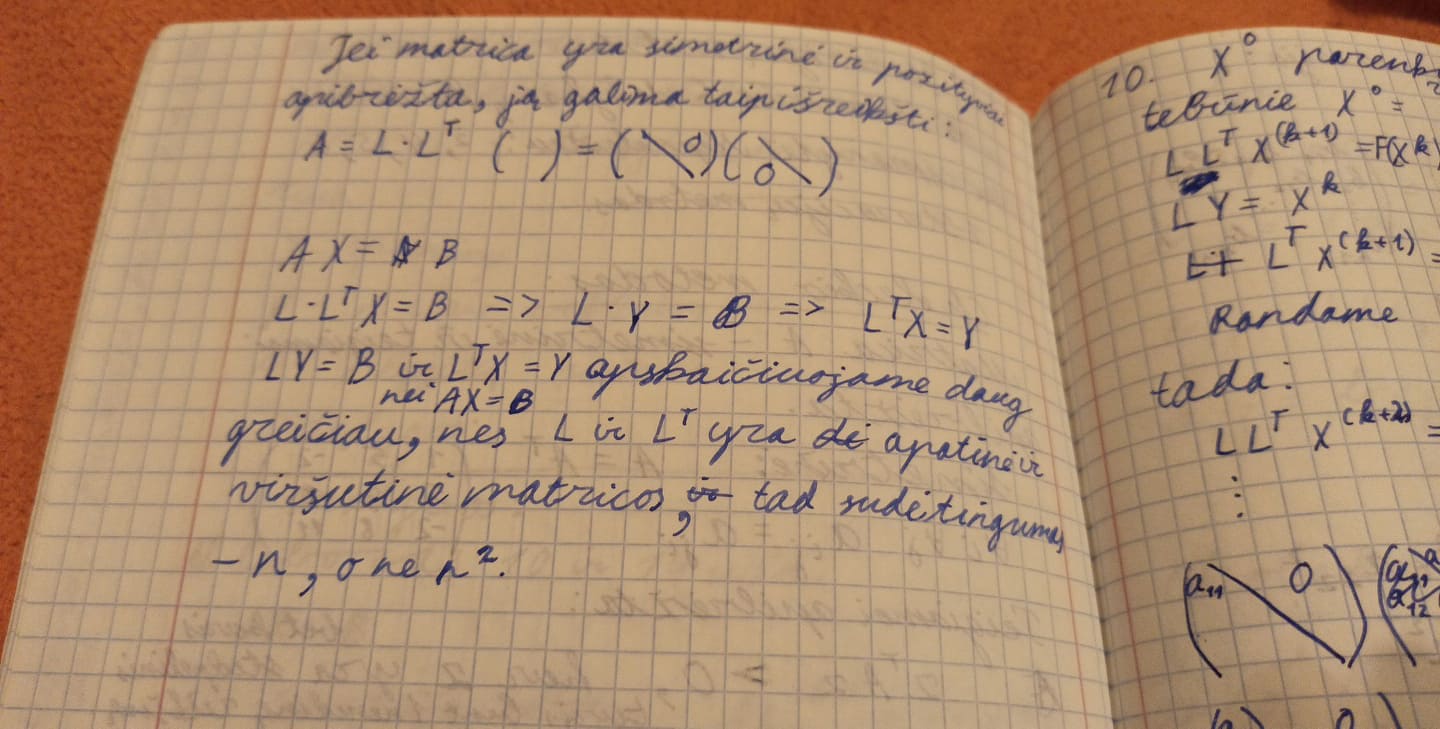 Jei matrica yra simetrinė ir pozityviai
apibrėžta, ją galima taip išreikšti:
A = L·Lᵀ ( ) = ( \ 0)(0 \ )
A X = B
L·Lᵀ X = B => L·Y = B => LᵀX = Y
LY = B ir LᵀX = Y apskaičiuojame daug
nei AX = B
greičiau, nes L ir Lᵀ yra apatinė ir
viršutinė matricos, tad sudėtingumas
- n, o ne n².
10. X⁰
tebūnie X⁰ =
L Lᵀ X⁽ᵏ⁺¹⁾ = F(Xᵏ)
L Y = Xᵏ
Lᵀ X⁽ᵏ⁺¹⁾ =
Randame
tada:
L Lᵀ X⁽ᵏ⁺²⁾ =
⋮
(a₁₁ \ 0) (a₁₁
a₁₂
0